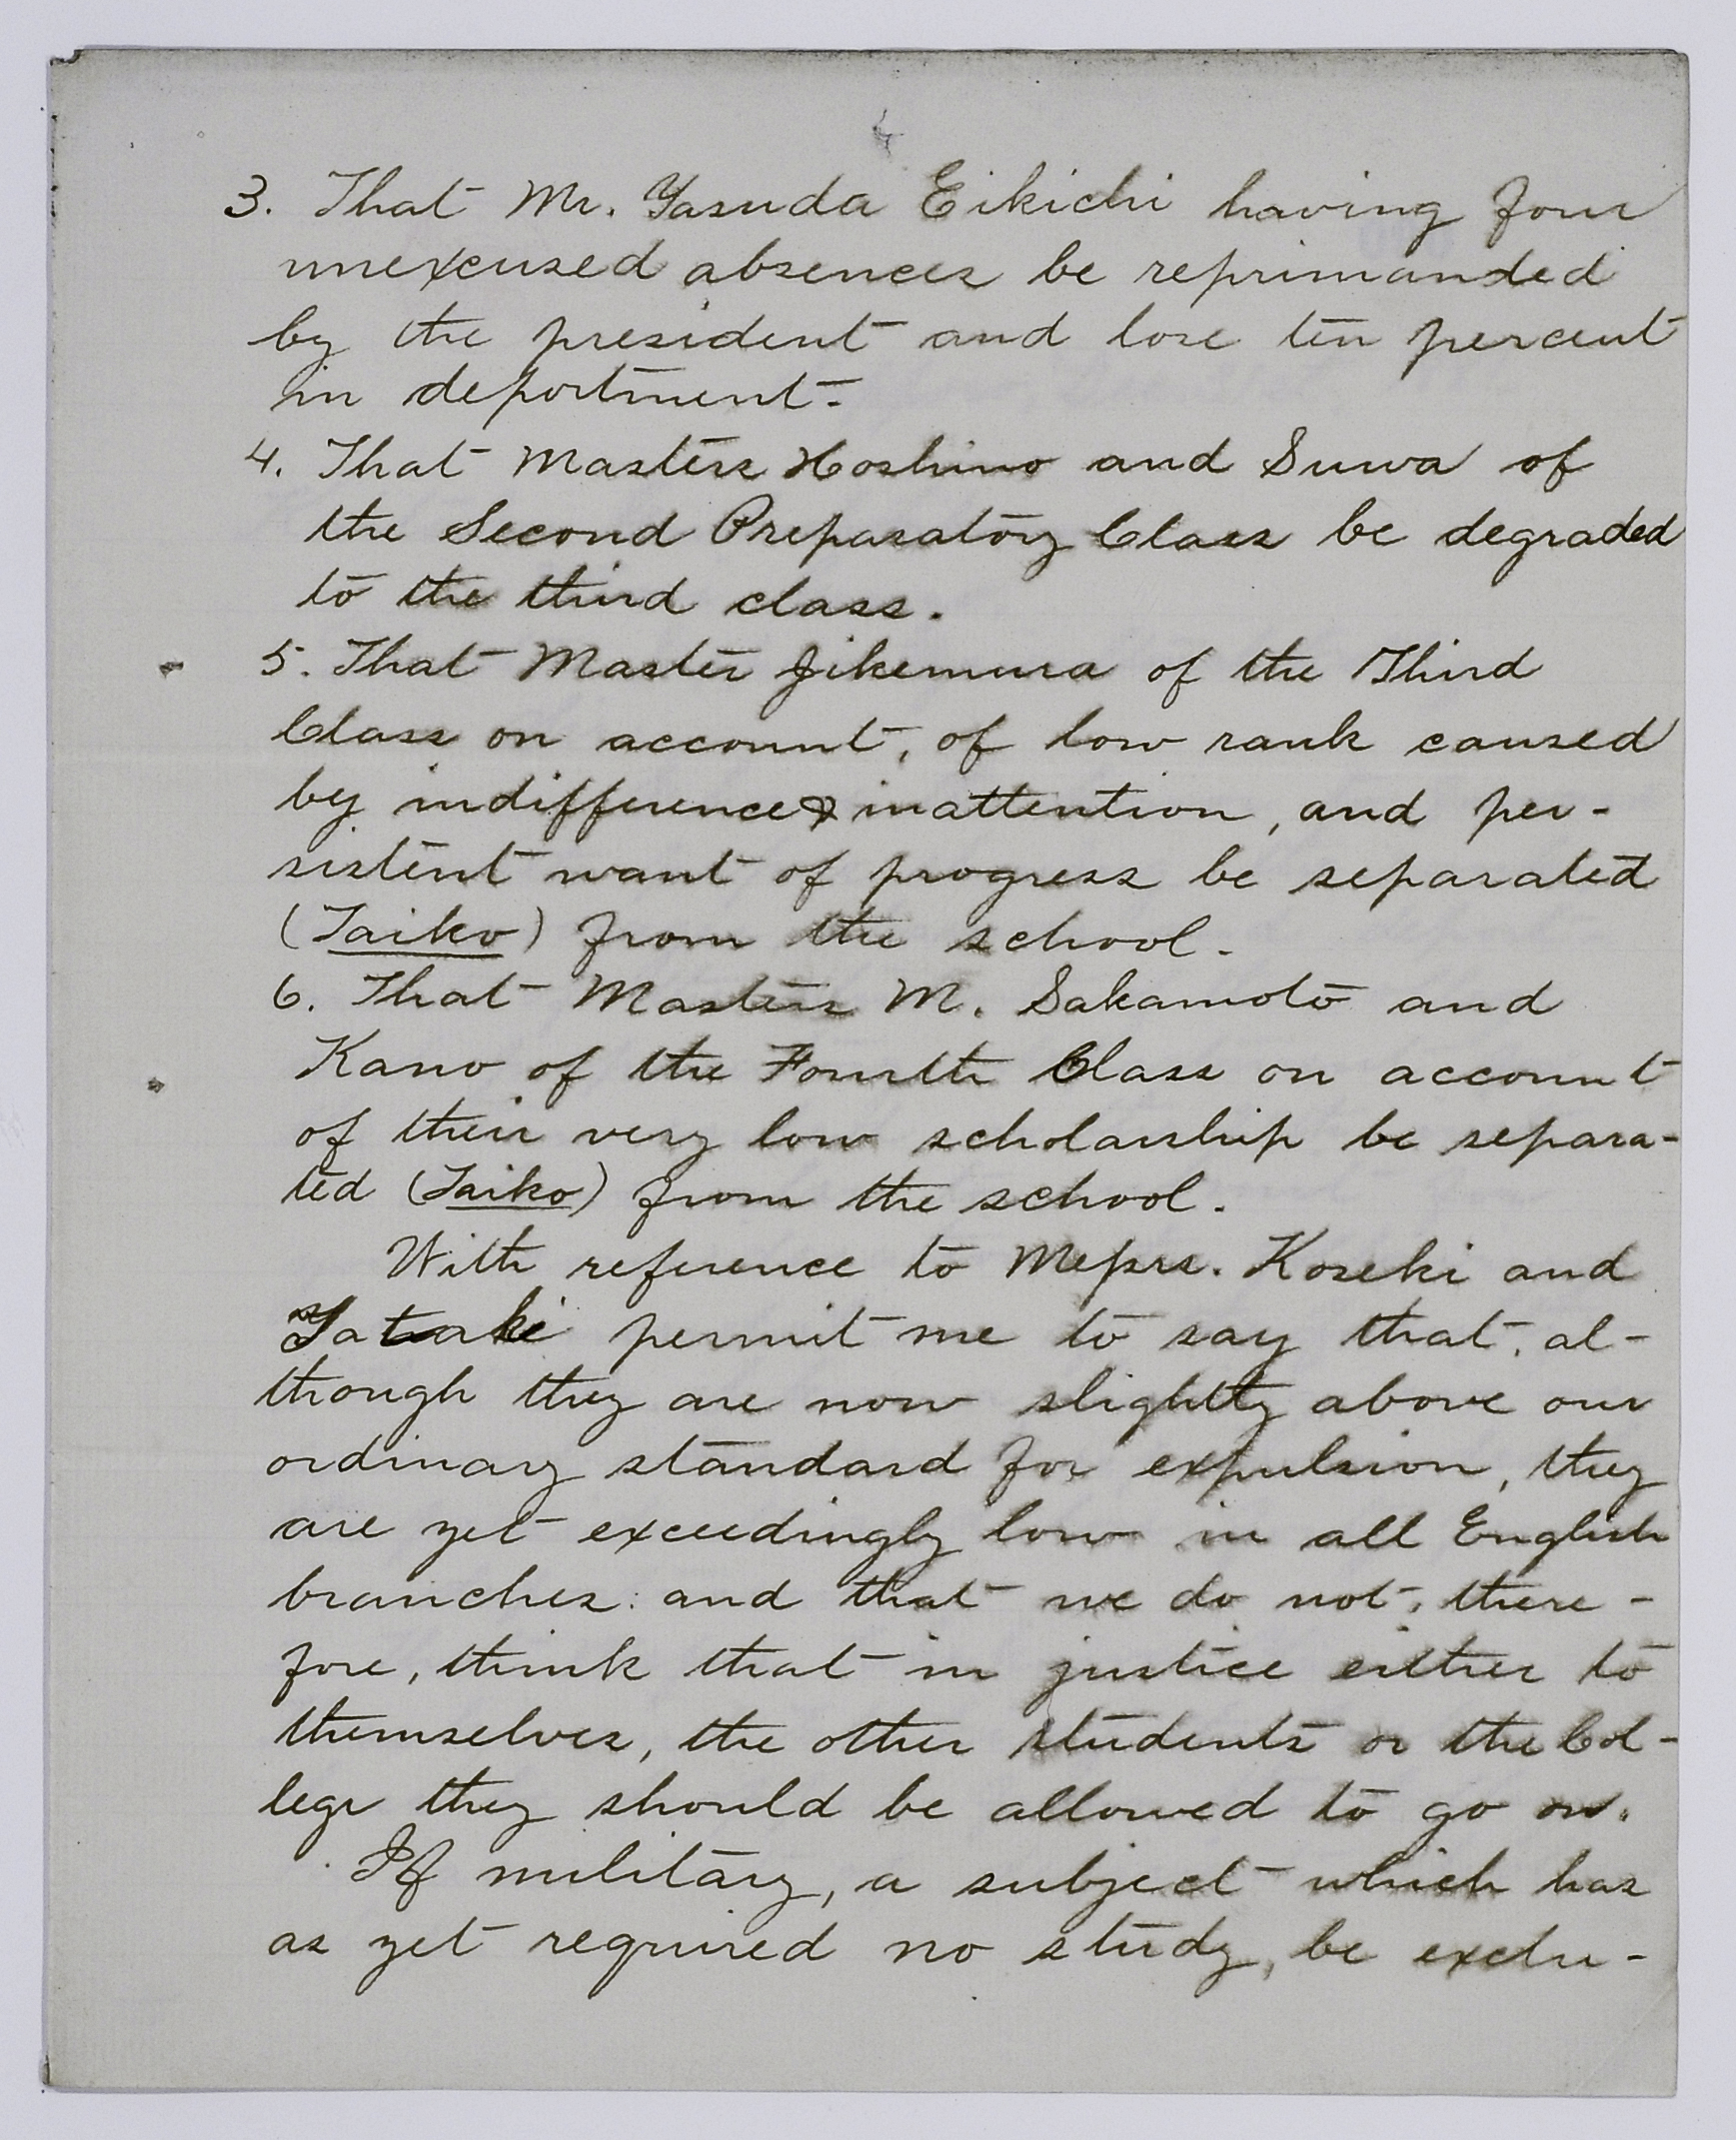 3. That Mr. Yasuda Eikichi having four
unexcused absences be reprimanded
by the president and lose ten percent
in deportment.
4. That Masters Hoshino and Suwa of
the Second Preparatory Class be degraded
to the third class.
5. That Master Jikemura of the Third
Class on account, of low rank caused
by indifference & inattention, and per-
sistent want of progress be separated
(Taiko) from the school.
6. That Masters M. Sakamoto and
Kano of the Fourth Class on account
of their very low scholarship be separa-
ted (Taiko) from the school.
With reference to Messrs. Koseki and
permit me to say that, al-
though they are now slightly above our
ordinary standard for expulsion, they
are yet exceedingly low in all English
branches: and that we do not, there-
fore, think that in justice either to
themselves, the other students or the Col-
lege they should be allowed to go on.
If military, a subject which has
as yet required no study, be exclu-